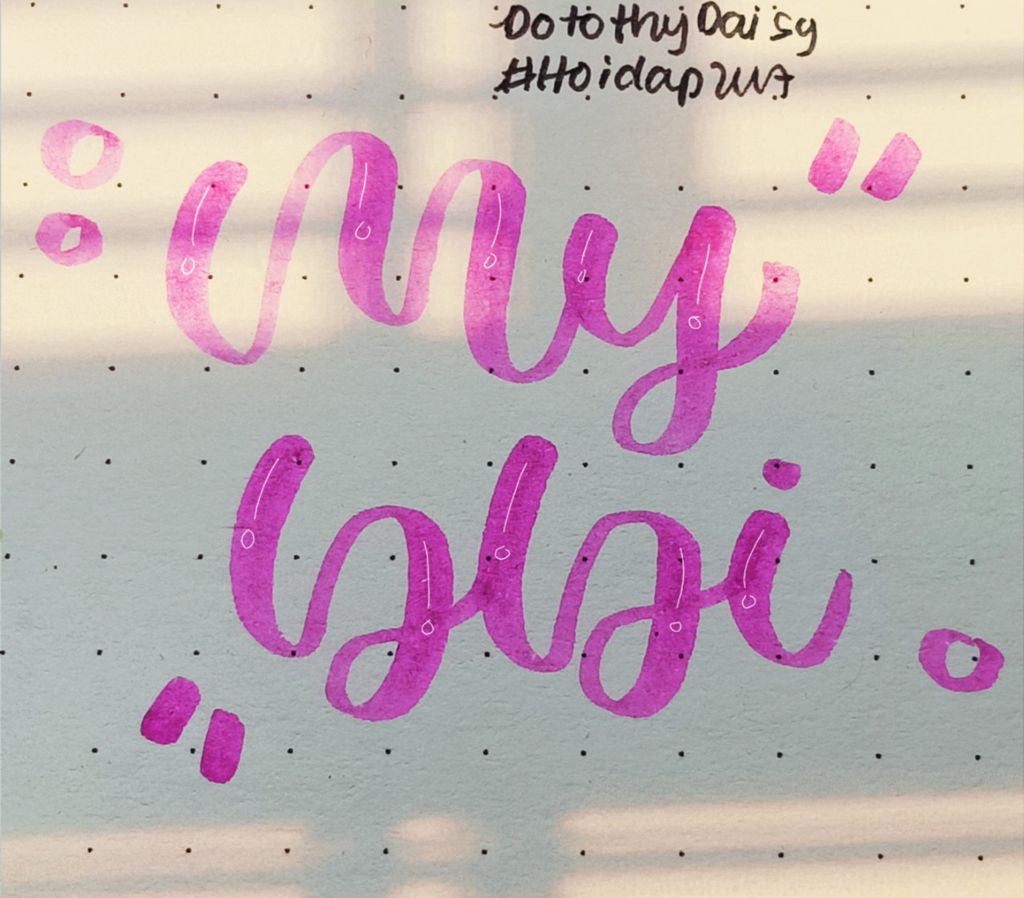 DotothyDaisy
#Hoidap247
My
bbi